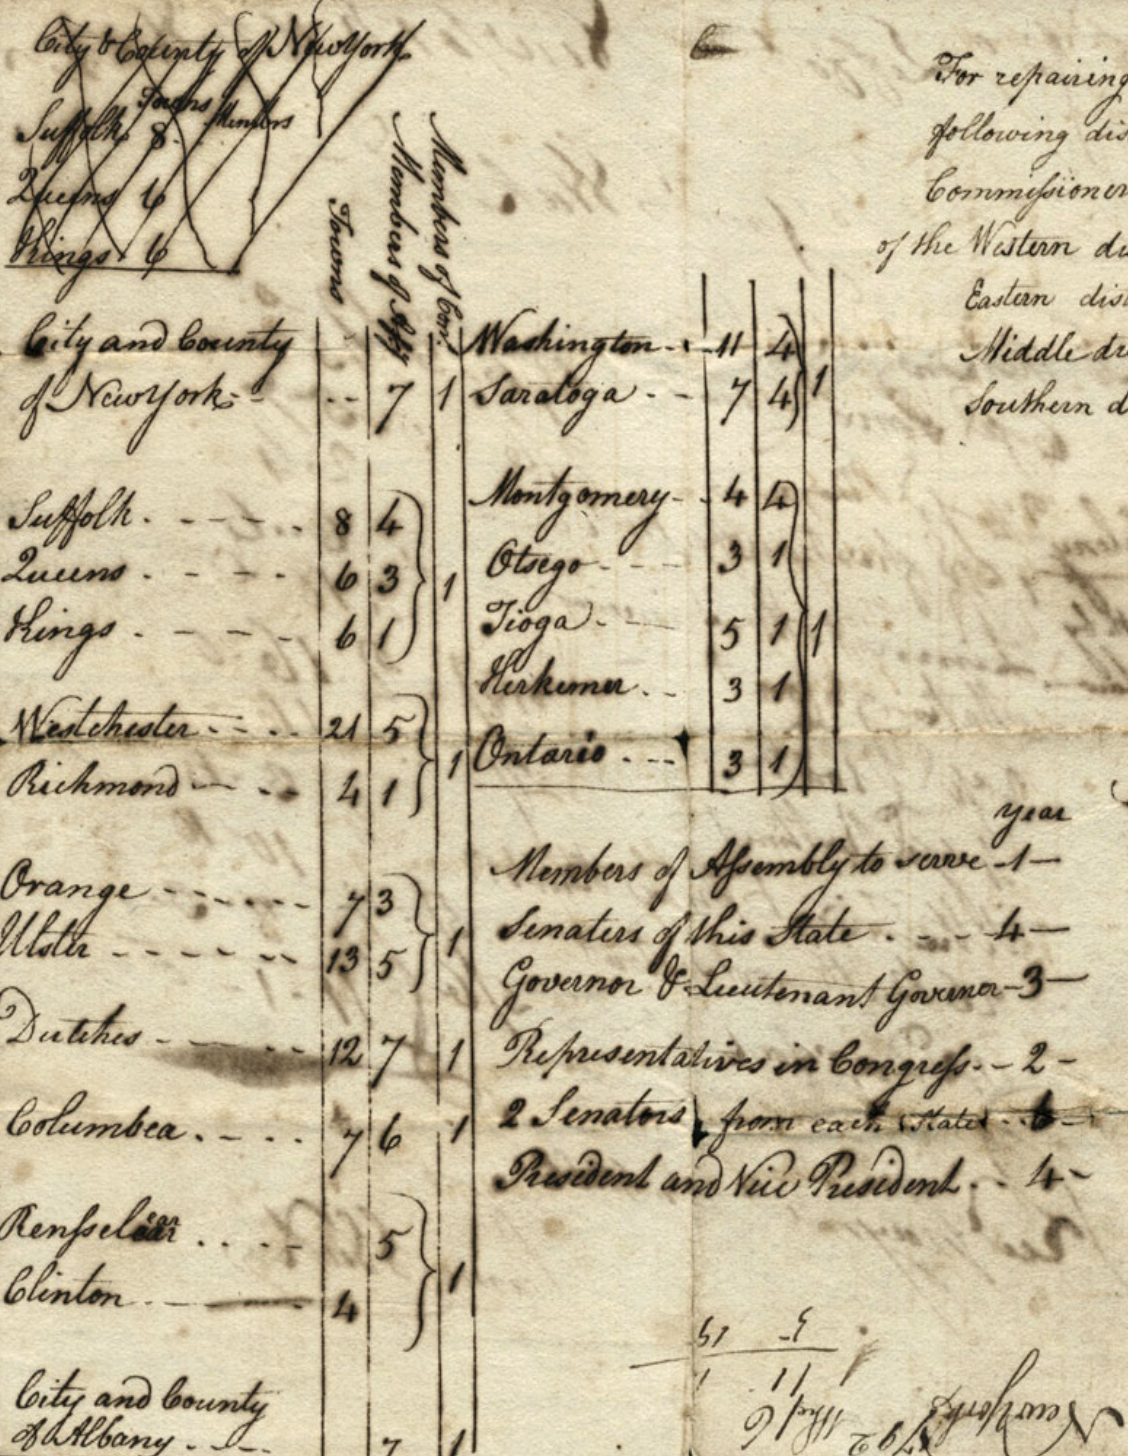 City & County of New York
Towns Members
Suffolk 8
Queens 6
Kings 6
Towns
Members of Assy
Members of Con.
City and County
of New York 7 1
Suffolk 8 4
Queens 6 3 1
Kings 6 1
Westchester 21 5
Richmond 4 1 1
Orange 7 3
Ulster 13 5 1
Dutches 12 7 1
Columbea 7 6 1
Rensselear 5
Clinton 4 1
City and County
of Albany 7 1
Washington 11 4
Saratoga 7 4 1
Montgomery 4 4
Otsego 3 1
Tioga 5 1 1
Herkemer 3 1
Ontario 3 1
year
Members of Assembly to serve 1
Senaters of this State 4
Governor & Lieutenant Governor 3
Representatives in Congress 2
2 Senators from each State 6
President and Vice President 4
For repairing
following dis
Commissioner
of the Western
Eastern dis
Middle
Southern d
New York